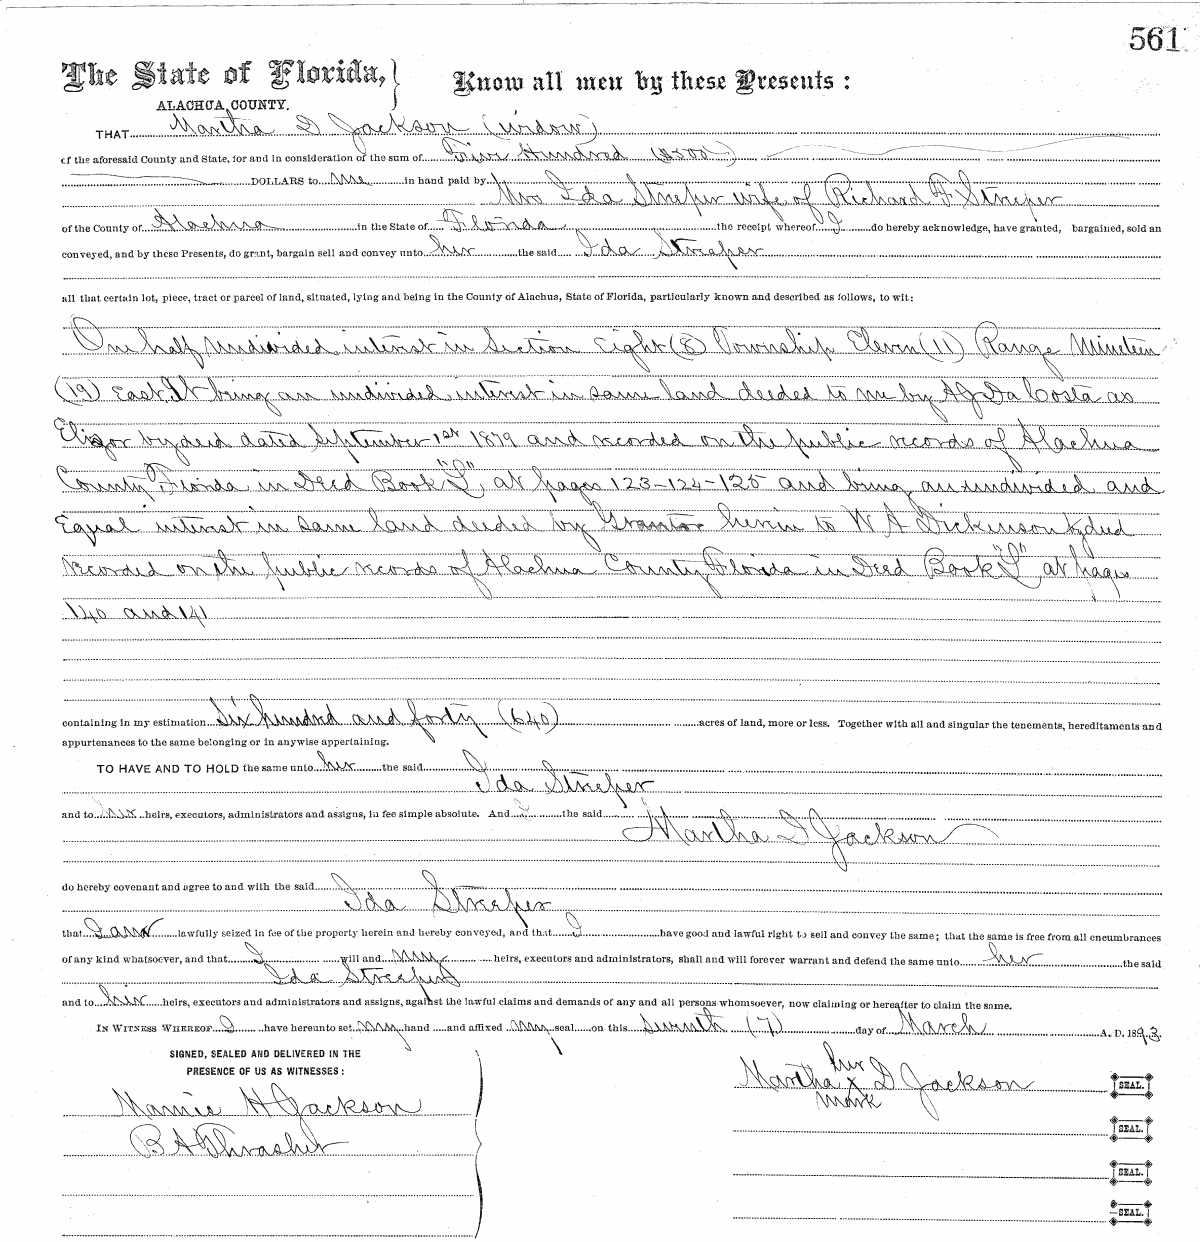 561
The State of Florida,
Know all men by these Presents :
ALACHUA COUNTY.
THAT Martha D Jackson (widow)
of the aforesaid County and State, for and in consideration of the sum of Five Hundred ($500)
DOLLARS to me in hand paid by
Mrs Ida Streeper wife of Richard F Streeper
of the County of Alachua in the State of Florida the receipt whereof I do hereby acknowledge, have granted, bargained, sold an
conveyed, and by these Presents, do grant, bargain sell and convey unto her the said Ida Streeper
all that certain lot, piece, tract or parcel of land, situated, lying and being in the County of Alachua, State of Florida, particularly known and described as follows, to wit:
One half undivided interest in Section Eight (8) Township Eleven (11) Range Nineteen
(19) East. It being an undivided interest in same land deeded to me by A J Da Costa as
Elizor by deed dated September 1st 1879 and recorded on the public records of Alachua
County Florida in Deed Book "L" at pages 123-124-125 and being an undivided and
Equal interest in same land deeded by Grantor herein to W A Dickinson by deed
recorded on the public records of Alachua County Florida in Deed Book "L" at pages
140 and 141
containing in my estimation Six hundred and forty (640) acres of land, more or less. Together with all and singular the tenements, hereditaments and
appurtenances to the same belonging or in anywise appertaining.
TO HAVE AND TO HOLD the same unto her the said
Ida Streeper
and to her heirs, executors, administrators and assigns, in fee simple absolute. And I the said
Martha D Jackson
do hereby covenant and agree to and with the said
Ida Streeper
that I am lawfully seized in fee of the property herein and hereby conveyed, and that I have good and lawful right to sell and convey the same; that the same is free from all encumbrances
of any kind whatsoever, and that I will and my heirs, executors and administrators, shall and will forever warrant and defend the same unto her the said
Ida Streeper
and to her heirs, executors and administrators and assigns, against the lawful claims and demands of any and all persons whomsoever, now claiming or hereafter to claim the same.
IN WITNESS WHEREOF I have hereunto set my hand and affixed my seal on this Seventh (7) day of March A. D. 1893.
SIGNED, SEALED AND DELIVERED IN THE
PRESENCE OF US AS WITNESSES :
her
Martha X D Jackson SEAL.
mark
Mamie H Jackson
SEAL.
B A Thrasher
SEAL.
SEAL.